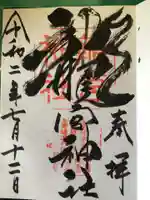 奉拝
龍宮神社
令和二年七月十二日